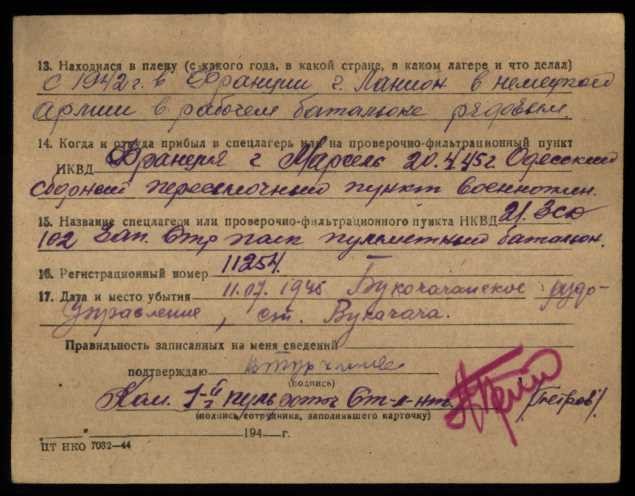 13. Находился в плену (с какого года, в какой стране, в каком лагере и что делал)
с 1942 г. в Франции г. Ланион в немецкой
армии в рабочем батальоне рядовым.
14. Когда и откуда прибыл в спецлагерь или на проверочно-фильтрационный пункт
НКВД Франция г. Марсель 20.4.45 г. Одесский
сборный пересылочный пункт военноплен.
15. Название спецлагеря или проверочно-фильтрационного пункта НКВД 21. Зсд
102 Зап. Стр полк пулеметный батальон.
16. Регистрационный номер 11254.
17. Дата и место убытия 11.07.1945 Букачачанское рудо-
управление, ст. Букачача.
Правильность записанных на меня сведений
подтверждаю
(подпись)
Ком. 1-й пульроты Ст-л-нт. (Петров).
(подпись сотрудника, заполнявшего карточку)
194 г.
ЦТ НКО 7032—44